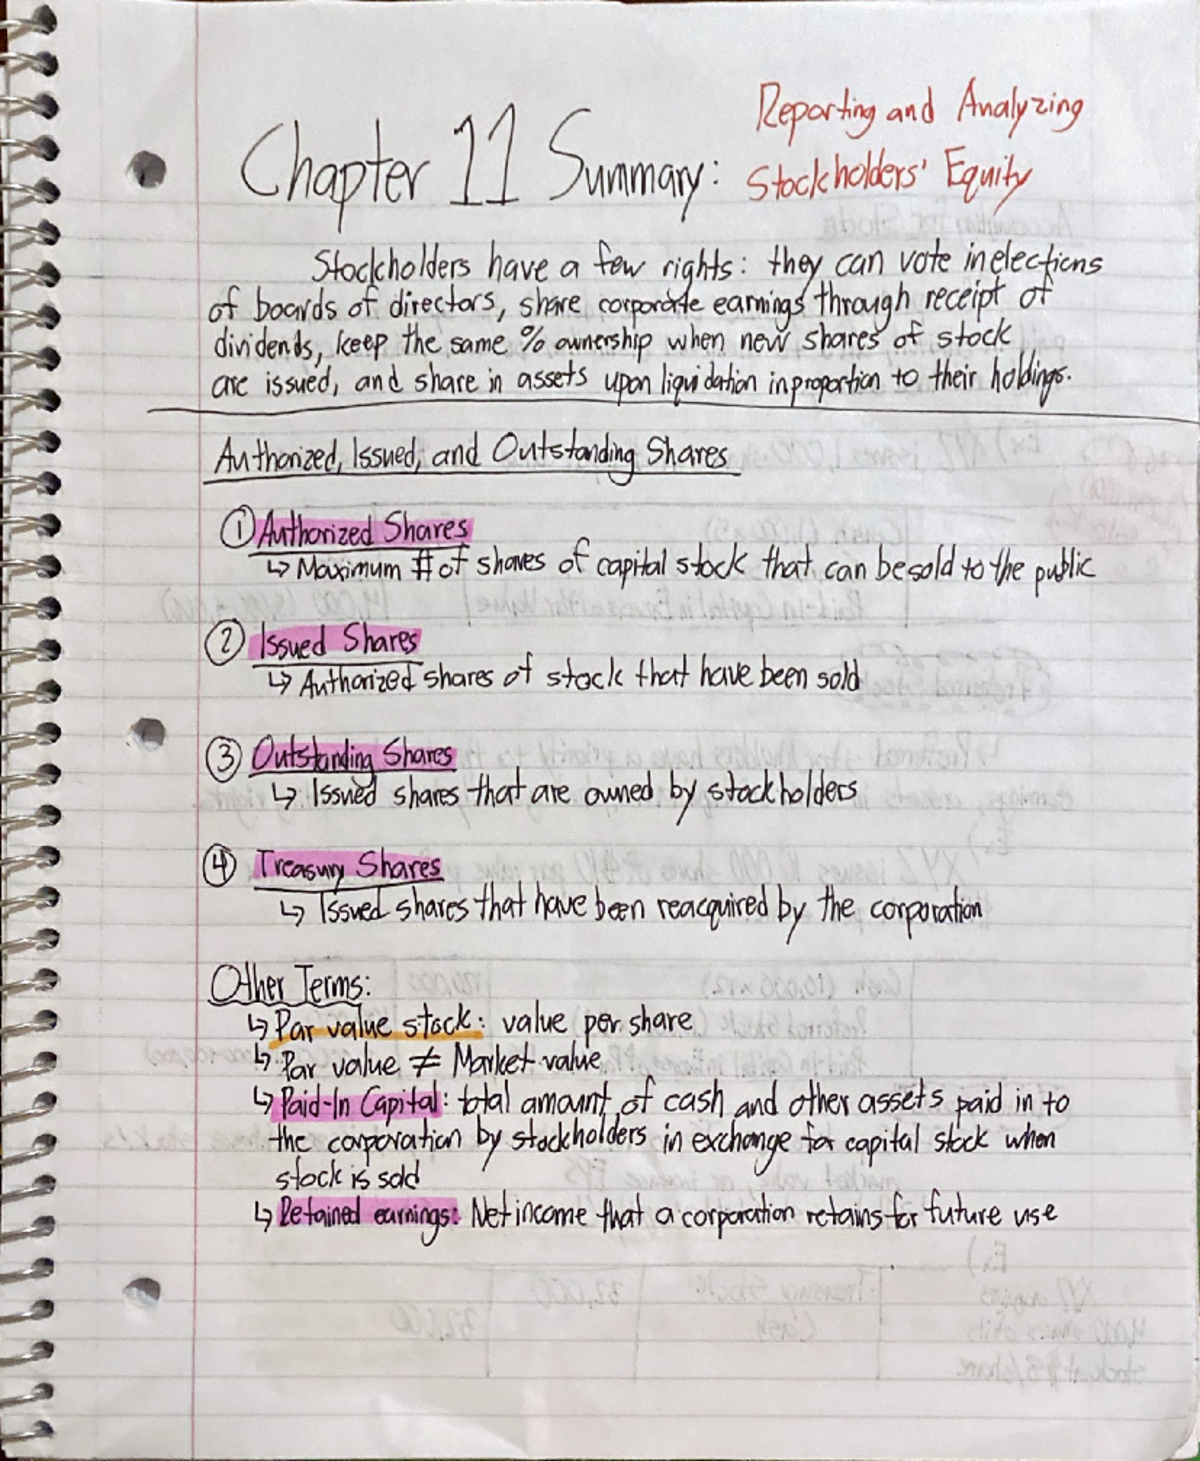 Chapter 11 Summary: Reporting and Analyzing
Stockholders' Equity
Stockholders have a few rights: they can vote in elections
of boards of directors, share corporate earnings through receipt of
dividends, keep the same % ownership when new shares of stock
are issued, and share in assets upon liquidation in proportion to their holdings.
Authorized, Issued, and Outstanding Shares
① Authorized Shares
↳ Maximum # of shares of capital stock that can be sold to the public
② Issued Shares
↳ Authorized shares of stock that have been sold
③ Outstanding Shares
↳ Issued shares that are owned by stockholders
④ Treasury Shares
↳ Issued shares that have been reacquired by the corporation
Other Terms:
↳ Par value stock: value per share
↳ Par value ≠ Market value
↳ Paid-In Capital: total amount of cash and other assets paid in to
the corporation by stockholders in exchange for capital stock when
stock is sold
↳ Retained earnings: Net income that a corporation retains for future use